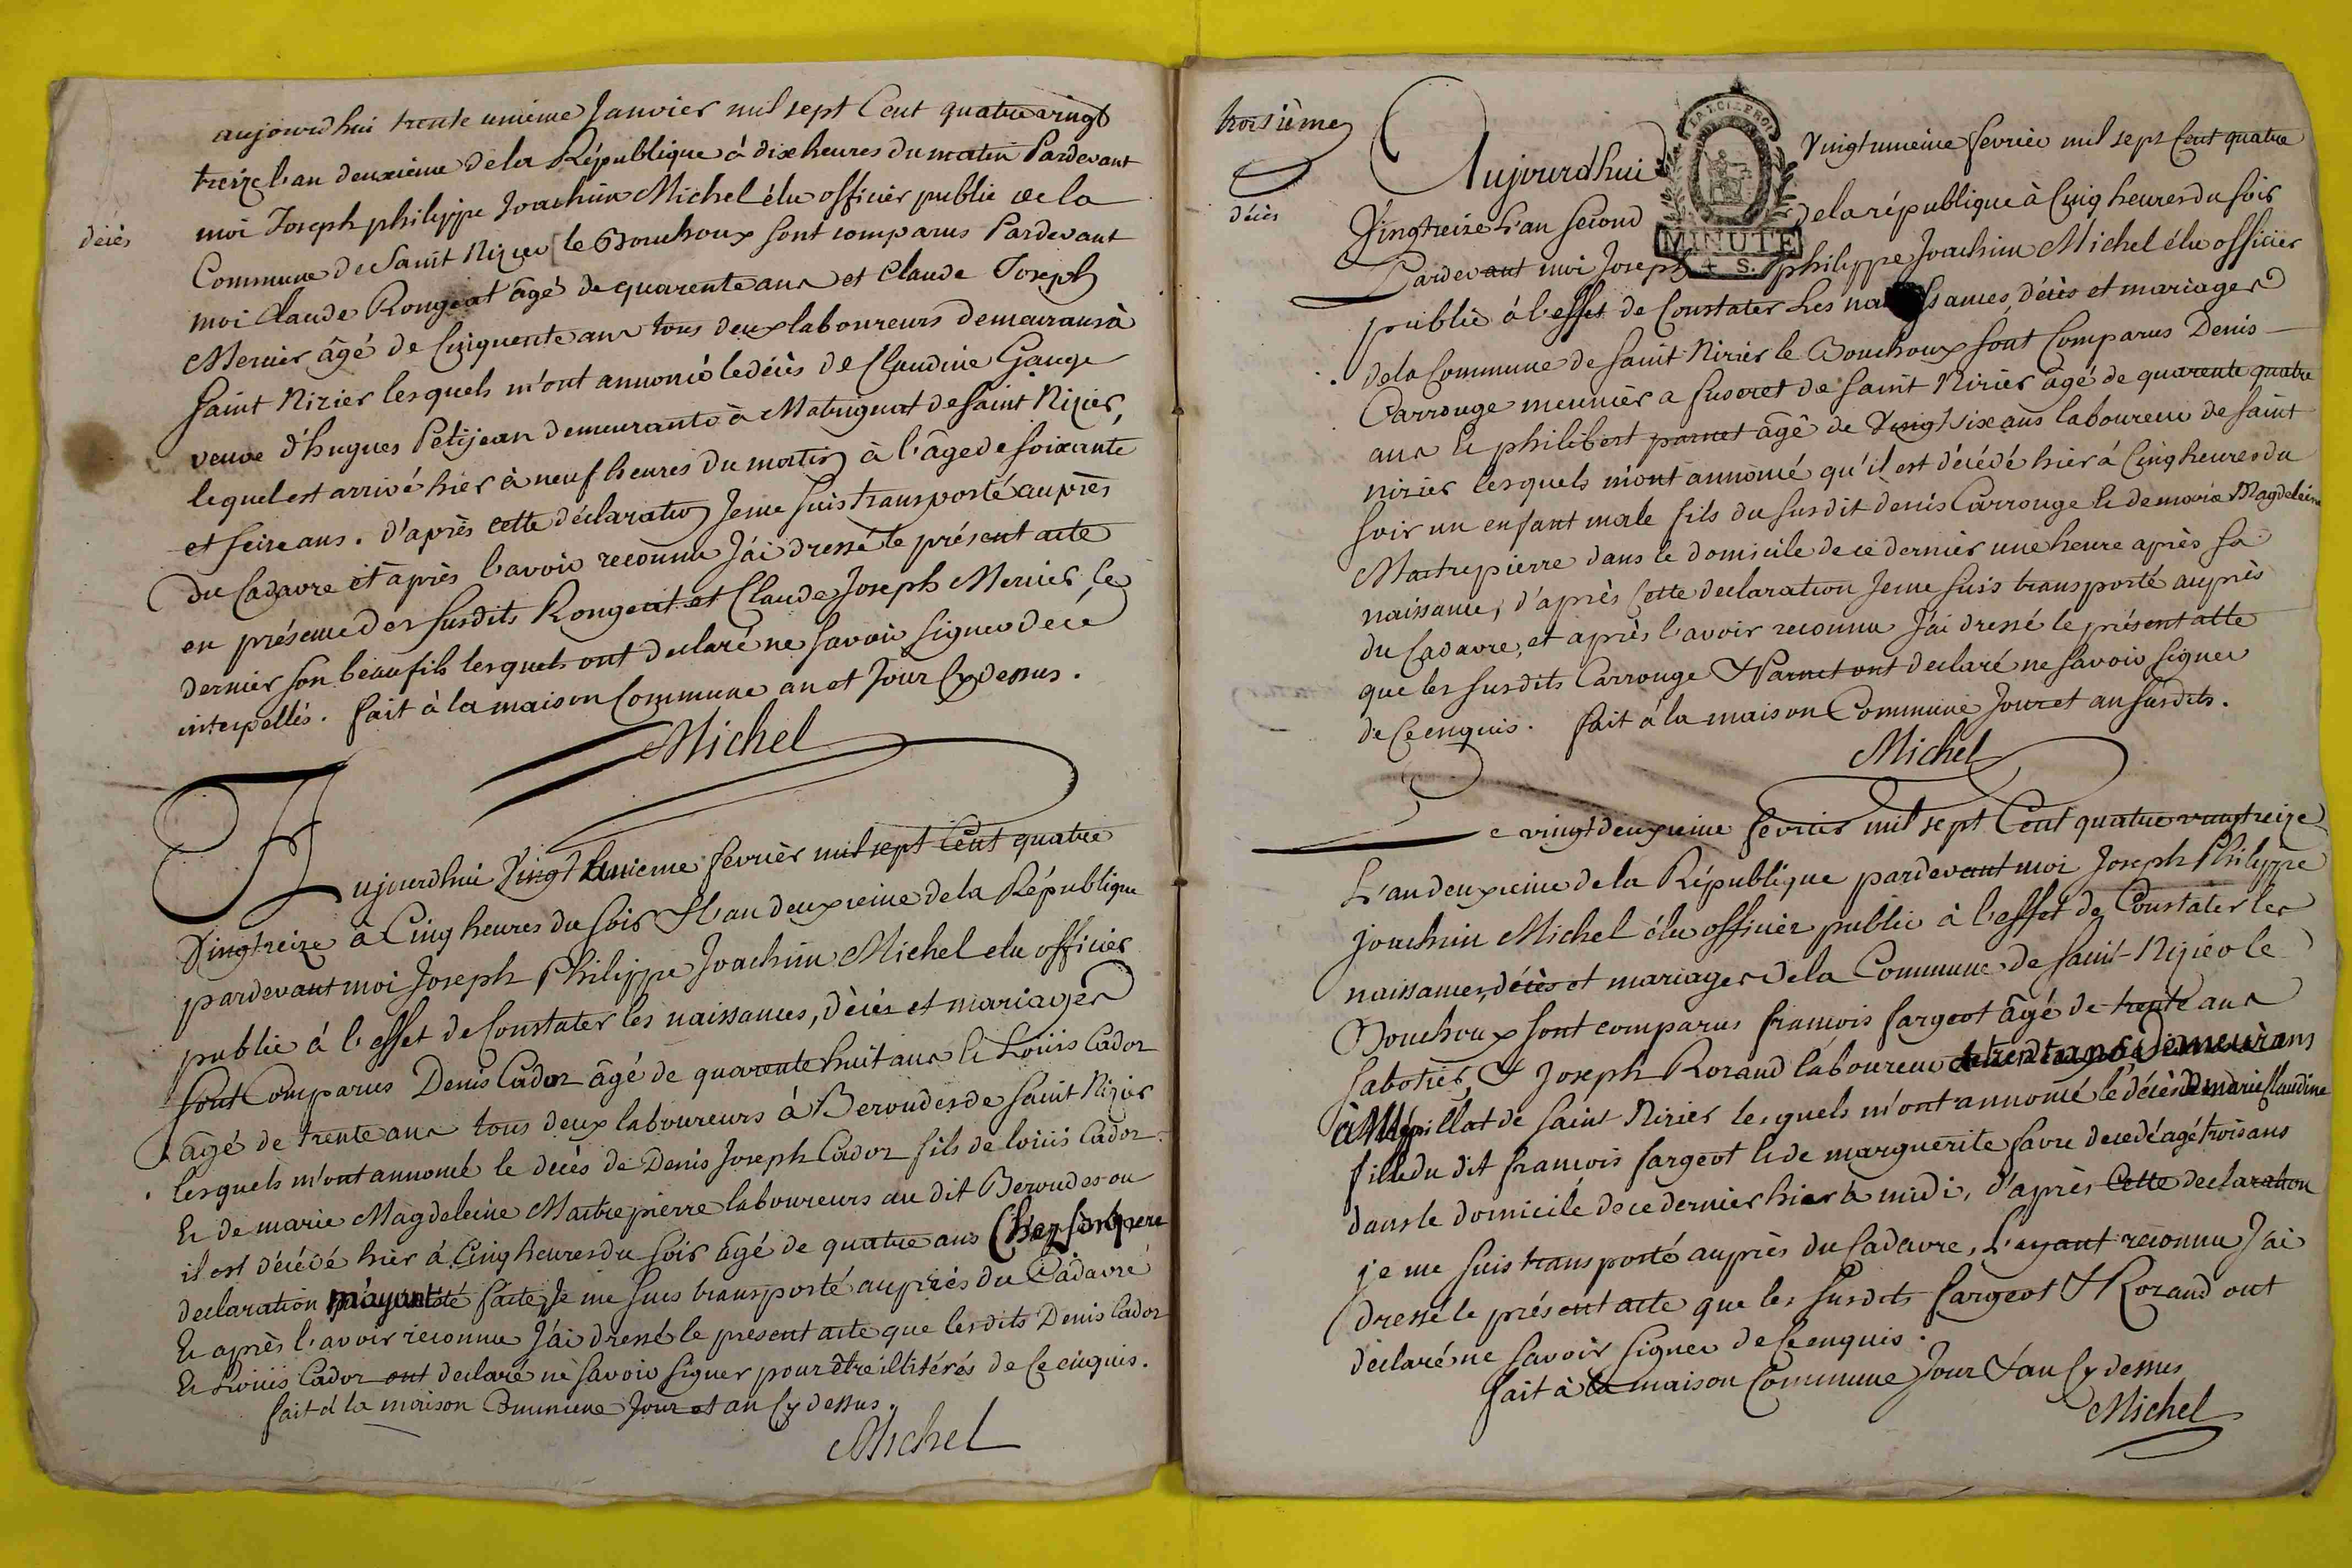 décès
aujourdhui trente unieme Janvier mil sept Cent quatre vingt
treize l'an deuxieme de la République à dix heures du matin Pardevant
moi Joseph philippe Joachim Michel élu officier public de la
Commune de Saint Nizier le Bouchoux sont comparus Pardevant
moi Claude Rongeat âgé de quarente ans et Claude Joseph
Mercier âgé de Cinquente ans tous deux laboureurs demeurans à
Saint Nizier lesquels m'ont annoncé le décès de Claudine Gauge
veuve d'hugues Petijean demeurante à Matrignat de Saint Nizier,
lequel est arrivé hier à neuf heures du matin à l'âge de soixante
et seize ans. d'après cette déclaration Je me suis transporté auprès
du Cadavre et après l'avoir reconnu J'ai dressé le présent acte
en présence des susdits Rongeat et Claude Joseph Mercier, ce
dernier son beau fils lesquels ont declaré ne savoir signer de ce
interpellés. fait à la maison Commune an et Jour Cy dessus.
Michel
Aujourdhui Vingt unieme fevrier mil sept Cent quatre
Vingtreize à Cinq heures du soir & l'an deuxieme de la République
pardevant moi Joseph Philippe Joachim Michel elu officier
public à l'effet de Constater les naissances, décès et mariages
sont Comparus Denis Cador âgé de quarente huit ans & Louis Cador
âgé de trente ans tous deux laboureurs à Beroudes de Saint Nizier
lesquels m'ont annoncé le décès de Denis Joseph Cador fils de louis Cador
& de marie Magdeleine Maitrepierre laboureurs au dit Beroudes ou
il est décédé hier à Cinq heures du soir âgé de quatre ans Chez son pere
declaration m'ayant été faite, Je me suis transporté auprès du Cadavre
& après l'avoir reconnu J'ai dressé le present acte que les dits Denis Cador
& Louis Cador ont declaré ne savoir signer pour être illitérés de Ce enquis.
fait à la maison Commune Jour et an Cy dessus.
Michel
troisième
décès
MINUTE
+ S.
Aujourdhui Vingt unieme fevrier mil sept Cent quatre
Vingtreize L'an second de la république à Cinq heures du soir
Pardevant moi Joseph philippe Joachim Michel élu officier
public à l'effet de Constater Les naissances, décès et mariages
de la Commune de saint Nizier le Bouchoux sont Comparus Denis
Carrouge meunier a fuseret de Saint Nizier âgé de quarente quatre
ans & philibert parnet âgé de Vingt six ans laboureur de saint
nizier lesquels m'ont annoncé qu'il est décédé hier à Cinq heures du
soir un enfant male fils du susdit denis Carrouge & de marie Magdeleine
Maitrepierre dans le domicile de ce dernier une heure après sa
naissance, d'après Cette declaration Je me suis transporté auprès
du Cadavre, et après l'avoir reconnu J'ai dressé le présent acte
que les susdits Carrouge & Parnet ont declaré ne savoir signer
de Ce enquis. fait à la maison Commune Jour et an susdits.
Michel
Le vingt deuxieme fevrier mil sept Cent quatre vingtreize
L'an deuxieme de la République pardevant moi Joseph Philippe
joachim Michel élu officier public à l'effet de Constater les
naissances, décès et mariages de la Commune de saint-Nizier le
Bouchoux sont comparus francois fargeot âgé de trente ans
sabotier, & Joseph Rozand laboureur demeurans
de Saint Nizier lesquels m'ont annoncé le décès de marie Claudine
fille du dit francois fargeot & de marguerite favre decedé agé trois ans
dans le domicile de ce dernier hier à midi, d'après Cette declaration
je me suis transporté auprès du Cadavre, L'ayant reconnu J'ai
dressé le présent acte que les susdits fargeot & Rozand ont
déclaré ne savoir signer de Ce enquis.
fait à la maison Commune Jour & an Cy dessus
Michel